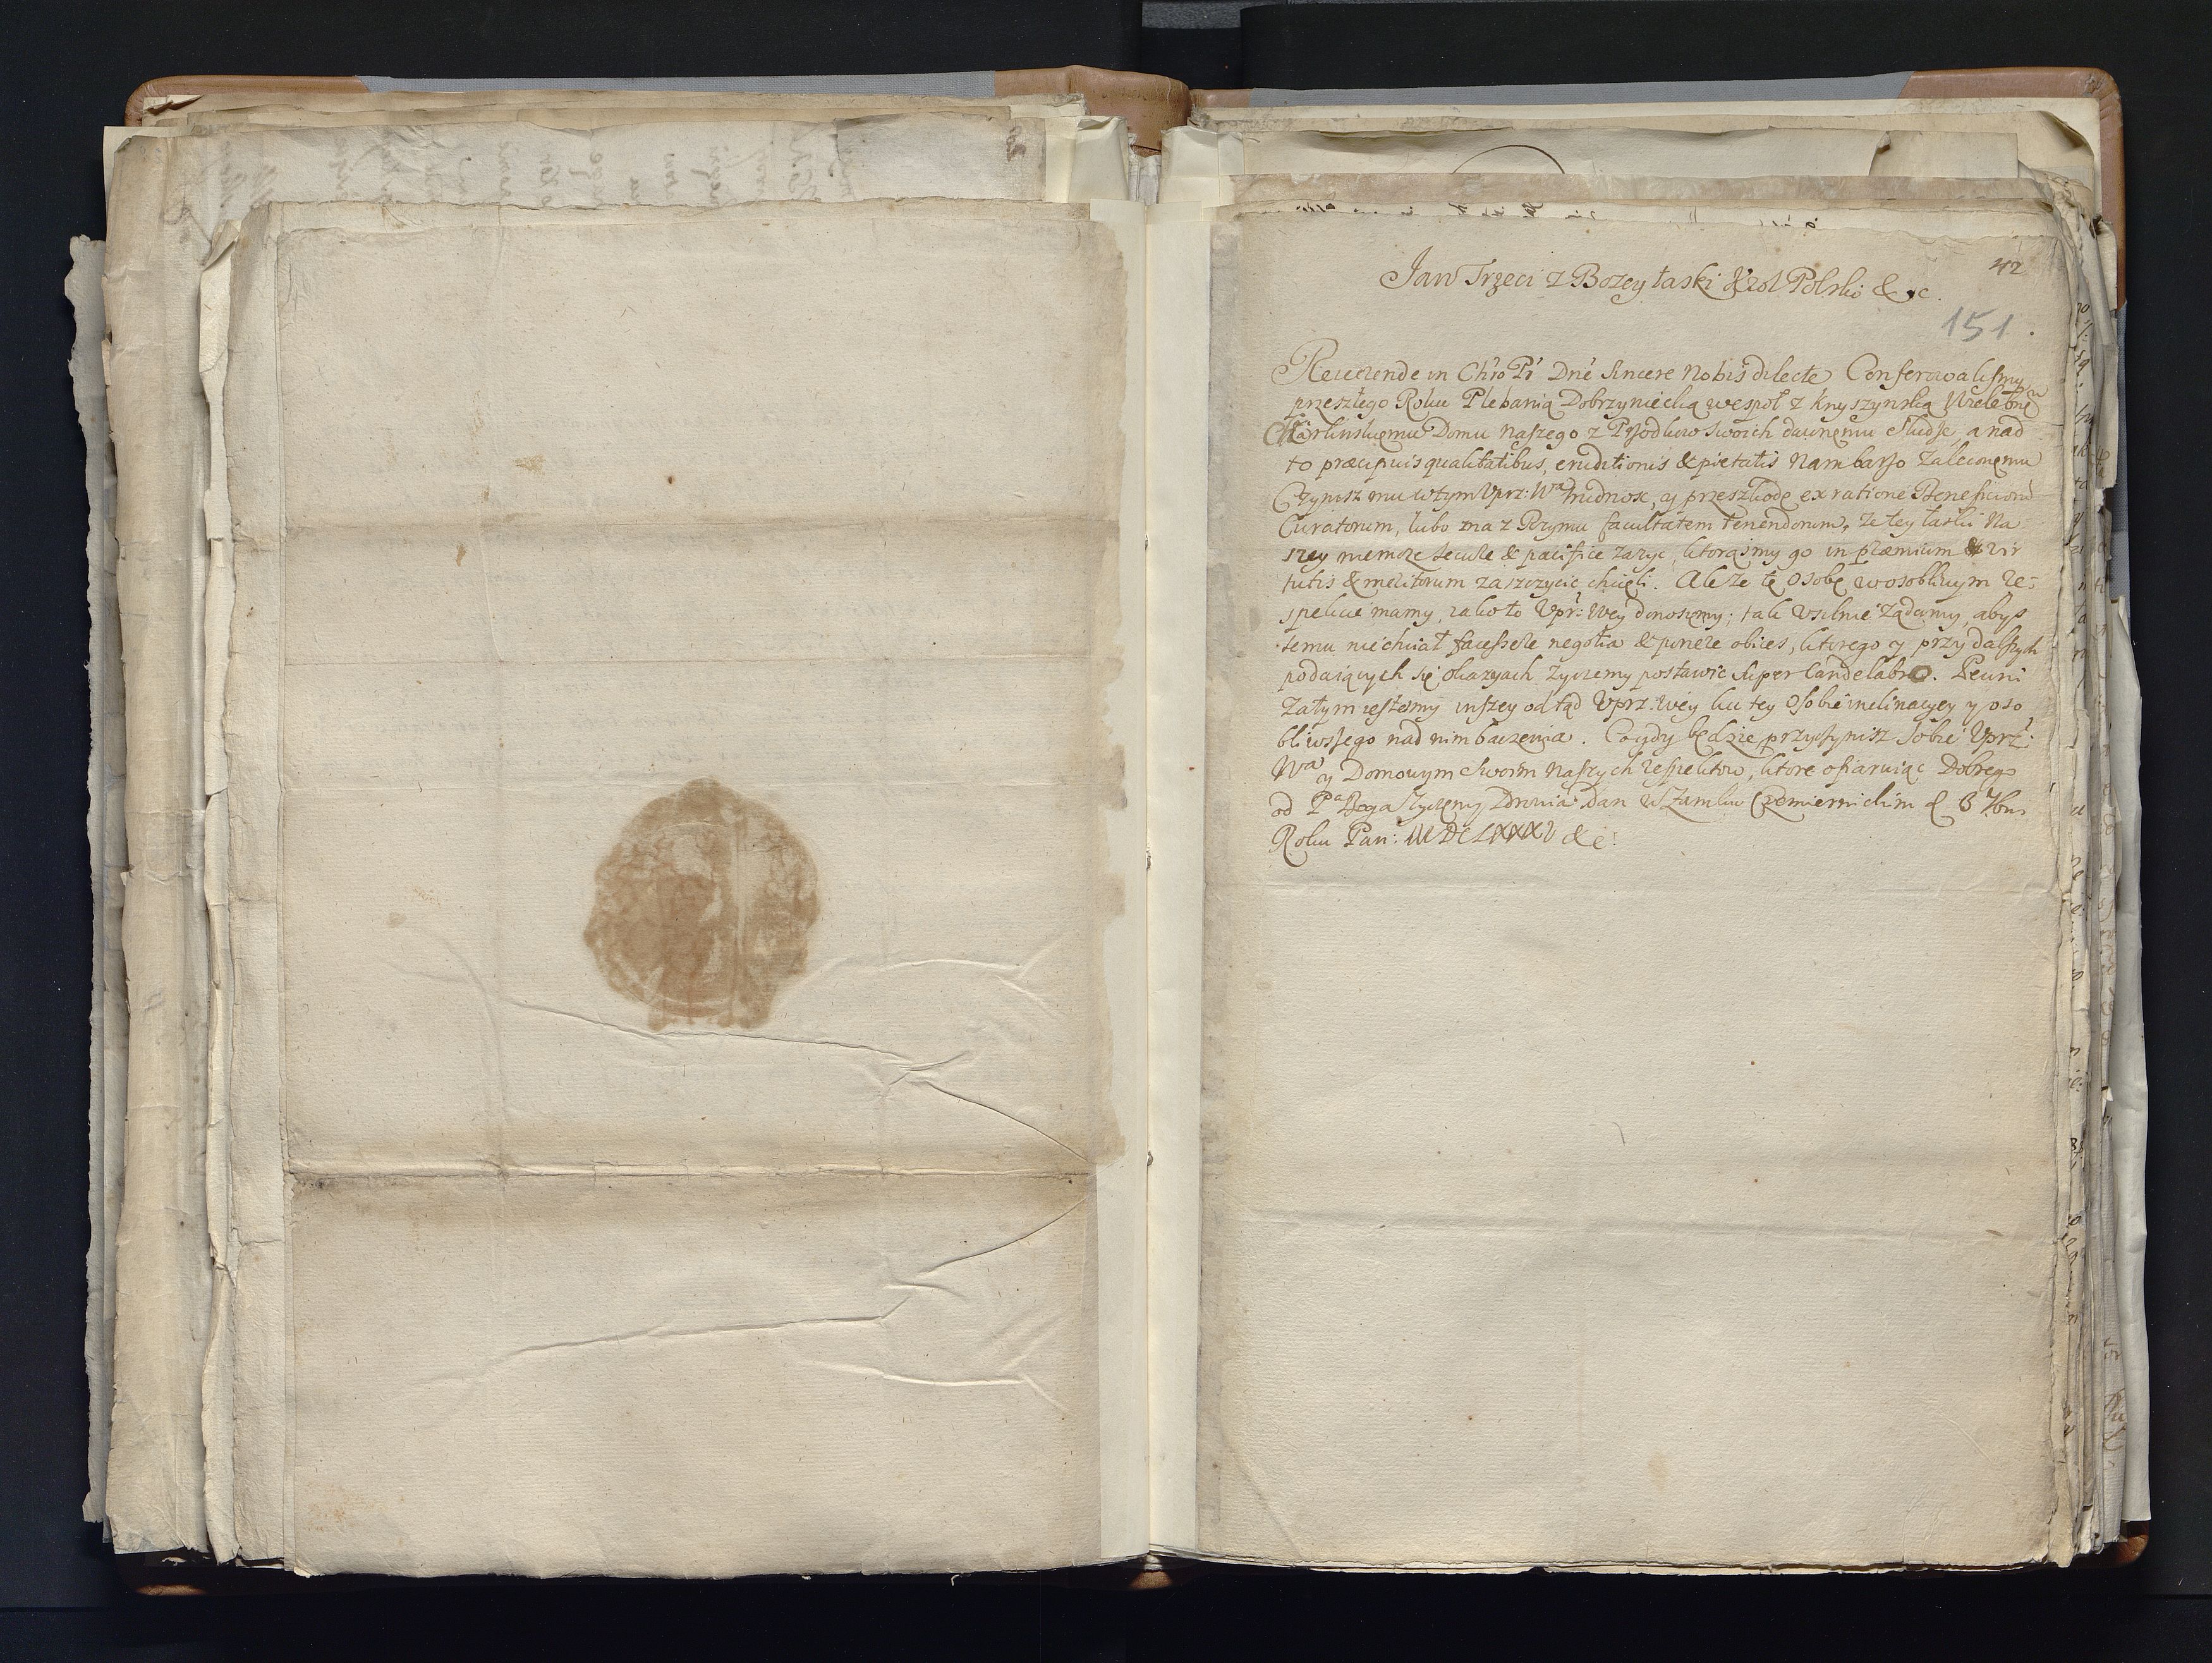 42
Jan Trzeci z Bozey łaski Krol Polski &c.
151.
Reuerende in Chro Pr Dne Sincere Nobis dilecte Conferowalismy
przeszłego Roku Plebanią Dobrzyniecką wespoł z Knyszynską Wielebnem
Karlinskiemu Domu naszego z Przodkow swoich dawnemu Słudze, a nad
to præcipuis qualitatibus, eruditionis & pietatis Nam barzo zaleconemu
Czynisz mu w tym Uprz: Wa trudnosc, y przeszkodę ex ratione Beneficioru
Curatorum, lubo ma z Rzymu facultatem tenendorum, ze tey łaski Na
szey niemoze secure & pacifice zazyc, ktorąsmy go in præmium vir
tutis & meritorum zaszczycic chcieli. Ale ze tę Osobę w osobliwym re-
spekcie mamy, iako to Uprz: Wey donosiemy; tak usilnie ządamy, abys
temu niechciał facessere negotia & ponere obices, ktorego y przy dalszych
podaiących się okazyach zyczemy postawic super Candelabro. Pewni
zatym iestesmy inszey odtąd Uprz: Wey ku tey Osobie inclinacyey y oso
bliwszego nad nim baczenia. Co gdy będzie przyczynisz sobie Uprz:
Wa y Domowym swoim naszych respektow, ktore ofiaruiąc Dobrego
od Pa Boga zyczemy Zdrowia Dan w Zamku Czemiernickim d 3 7bris
Roku Pan: MDCLXXXV &c: